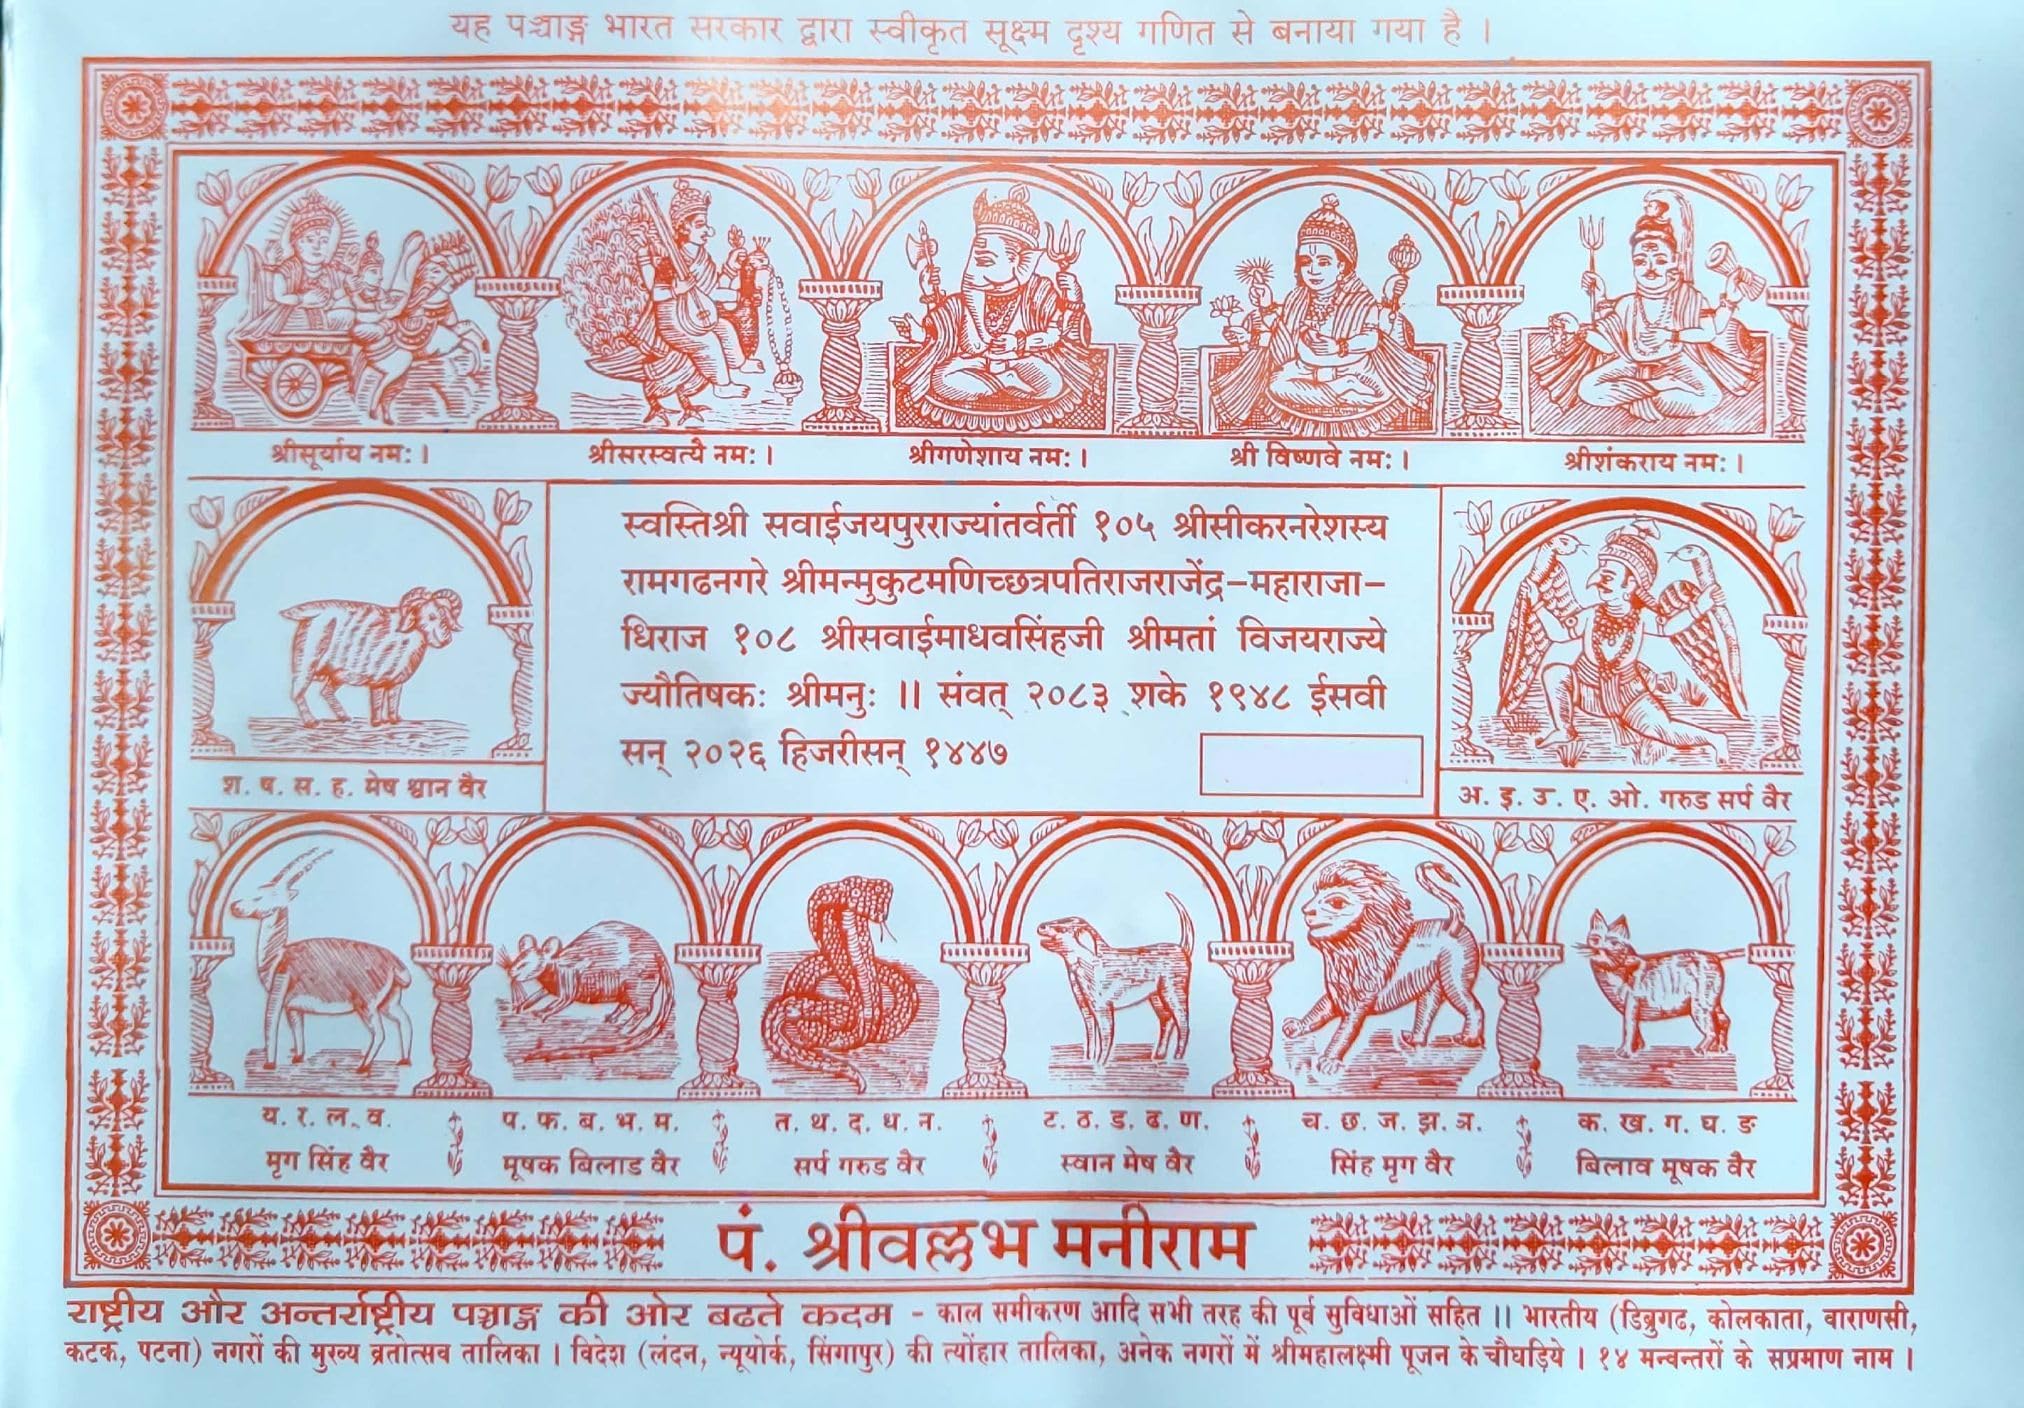 यह पञ्चाङ्ग भारत सरकार द्वारा स्वीकृत सूक्ष्म दृश्य गणित से बनाया गया है ।
श्रीसूर्याय नमः । श्रीसरस्वत्यै नमः । श्रीगणेशाय नमः । श्री विष्णवे नमः । श्रीशंकराय नमः ।
स्वस्तिश्री सवाईजयपुरराज्यांतर्वर्ती १०५ श्रीसीकरनरेशस्य
रामगढनगरे श्रीमन्मुकुटमणिच्छत्रपतिराजराजेंद्र-महाराजा-
धिराज १०८ श्रीसवाईमाधवसिंहजी श्रीमतां विजयराज्ये
ज्यौतिषकः श्रीमनुः ।। संवत् २०८३ शके १९४८ ईसवी
सन् २०२६ हिजरीसन् १४४७
श. ष. स. ह. मेष श्वान वैर
अ. इ. उ. ए. ओ. गरुड सर्प वैर
य. र. ल. व. प. फ. ब. भ. म. त. थ. द. ध. न. ट. ठ. ड. ढ. ण. च. छ. ज. झ. ञ. क. ख. ग. घ. ङ
मृग सिंह वैर मूषक बिलाड वैर सर्प गरुड वैर स्वान मेष वैर सिंह मृग वैर बिलाव मूषक वैर
पं. श्रीवल्लभ मनीराम
राष्ट्रीय और अन्तर्राष्ट्रीय पञ्चाङ्ग की ओर बढते कदम - काल समीकरण आदि सभी तरह की पूर्व सुविधाओं सहित ।। भारतीय (डिब्रुगढ, कोलकाता, वाराणसी,
कटक, पटना) नगरों की मुख्य व्रतोत्सव तालिका । विदेश (लंदन, न्यूयोर्क, सिंगापुर) की त्योंहार तालिका, अनेक नगरों में श्रीमहालक्ष्मी पूजन के चौघड़िये । १४ मन्वन्तरों के सप्रमाण नाम ।